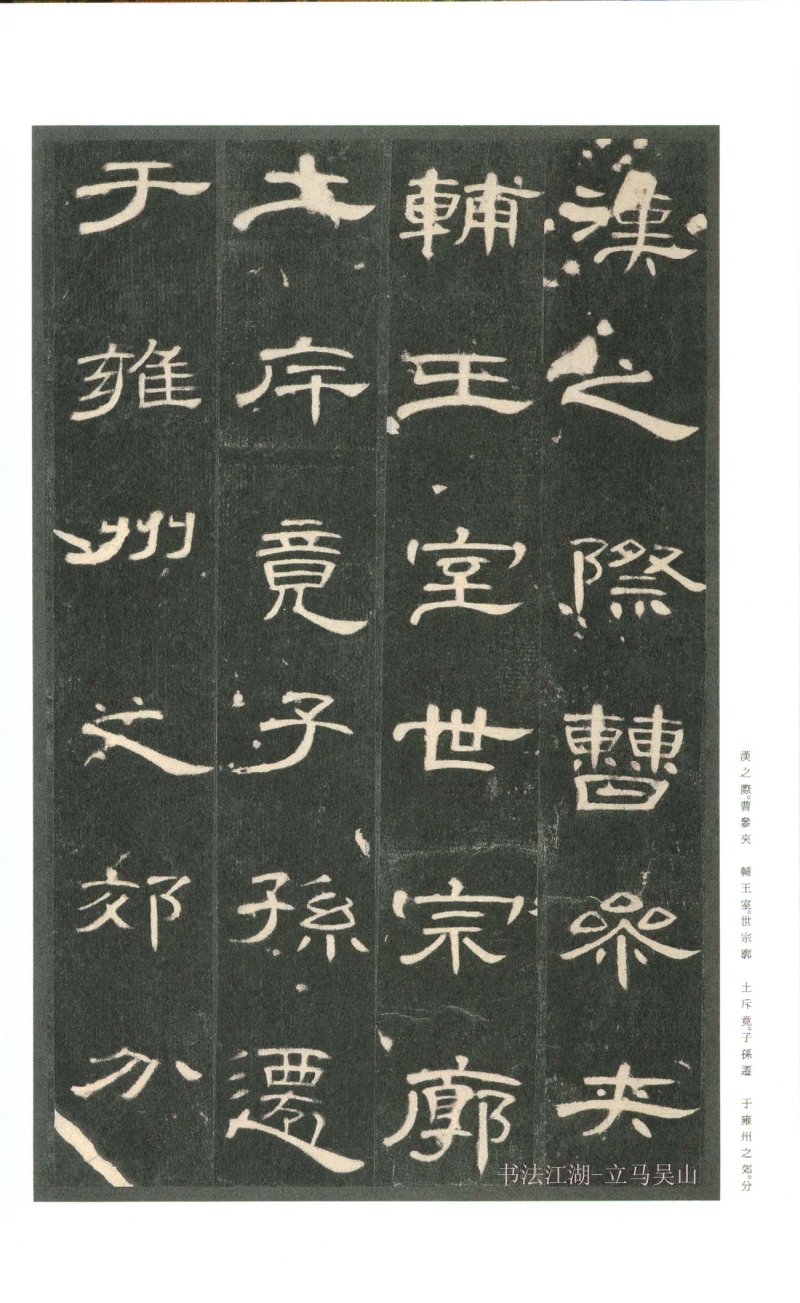 漢之際曹參夾
輔王室世宗廓
土斥竟子孫遷
于雍州之郊分
漢之際。曹參夾 輔王室。世宗廓 土斥竟。子孫遷 于雍州之郊。分
书法江湖-立马吴山